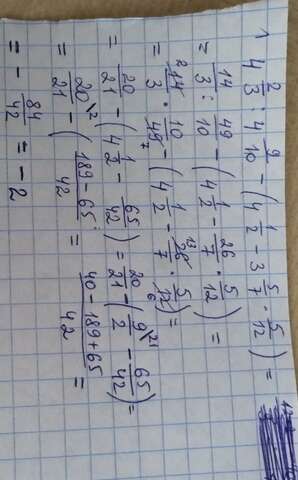 1 4 2/3 : 4 9/10 - (4 1/2 - 3 5/7 · 5/12) =
= 14/3 : 49/10 - (4 1/2 - 26/7 · 5/12) =
= 14²/3 · 10/49₇ - (4 1/2 - 26¹³/7 · 5/12₆) =
= 20/21 - (4 1/2 - 65/42) = 20/21 - (9²¹/2 - 65/42) =
= 20²/21 - (189-65/42) = 40-189+65/42 =
= - 84/42 = -2